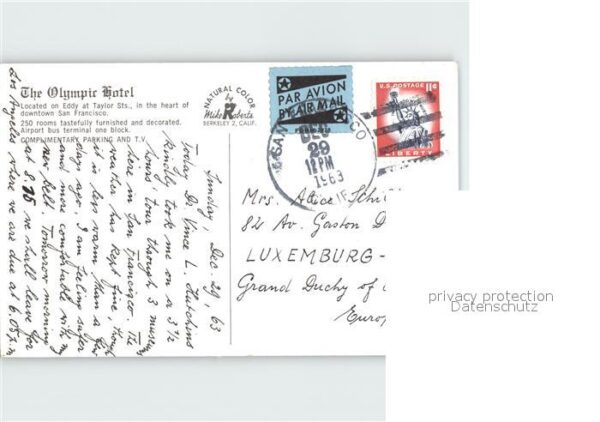 The Olympic Hotel
Located on Eddy at Taylor Sts., in the heart of
downtown San Francisco.
250 rooms tastefully furnished and decorated.
Airport bus terminal one block.
COMPLIMENTARY PARKING AND T.V.
NATURAL COLOR
R
Mike Roberts
BERKELEY 2, CALIF.
PAR AVION
BY AIR MAIL
U.S. POSTAGE 11¢
LIBERTY
SAN
CO
DEC
29
12 PM
1963
Sunday, Dec 29 63
Today Dr. Vince L. Hutchins
kindly took me on a 3½
hours' tour through 3 museums
here in San Francisco. The
weather has kept fine, though
it is less warm than a few
days ago. I am feeling safer
and more comfortable with my
new belt. Tomorrow morning
at 8.15 we shall leave for
Los Angeles where we are due at 6.05 p.m
Mrs. Alice Schi
82 Av. Gaston D
LUXEMBURG-
Grand Duchy of
Europ
privacy protection
Datenschutz